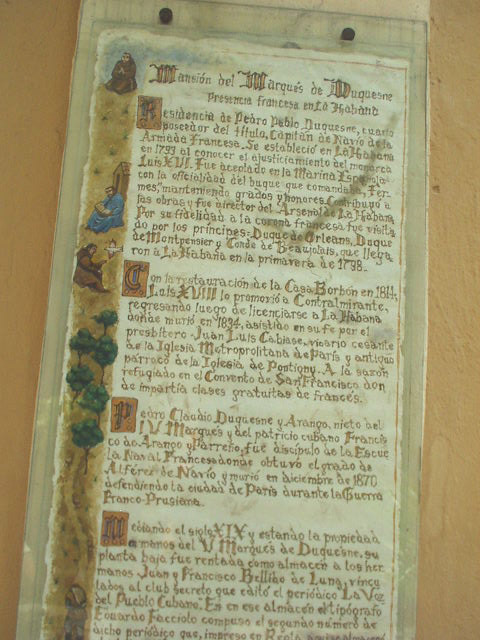 Mansión del Marqués de Duquesne
Presencia francesa en La Habana
Residencia de Pedro Pablo Duquesne, cuarto
poseedor del título, Capitán de Navío de la
Armada Francesa. Se estableció en La Habana
en 1793 al conocer el ajusticiamiento del monarca
Luis XVI. Fue aceptado en la Marina Española
con la oficialidad del buque que comandaba, Fer-
mes, manteniendo grados y honores. Contribuyó a
las obras y fue director del Arsenal de La Habana
Por su fidelidad a la corona francesa fue visita
do por los príncipes: Duque de Orleans, Duque
de Montpensier y Conde de Beaujolais, que llega
ron a La Habana en la primavera de 1798.
Con la restauración de la Casa Borbón en 1814,
Luis XVIII lo promovió a Contralmirante,
regresando luego de licenciarse a La Habana
donde murió en 1834, asistido en su fe por el
presbítero Juan Luis Cabiase, vicario cesante
de la Iglesia Metropolitana de París y antiguo
párroco de la Iglesia de Pontigny. A la sazón
refugiado en el Convento de San Francisco don
de impartía clases gratuitas de francés.
Pedro Claudio Duquesne y Arango, nieto del
IV Marqués y del patricio cubano Francis
co de Arango y Parreño, fue discípulo de la Escue
la Naval Francesa donde obtuvo el grado de
Alférez de Navío y murió en diciembre de 1870
defendiendo la ciudad de París durante la Guerra
Franco-Prusiana.
Mediando el siglo XIX y estando la propiedad
a manos del V Marqués de Duquesne, su
planta baja fue rentada como almacén a los her
manos Juan y Francisco Bellido de Luna, vincu
lados al club secreto que editó el periódico La Voz
del Pueblo Cubano. En en ese almacén el tipógrafo
Eduardo Facciolo compuso el segundo número de
dicho periódico que, impreso en Regla